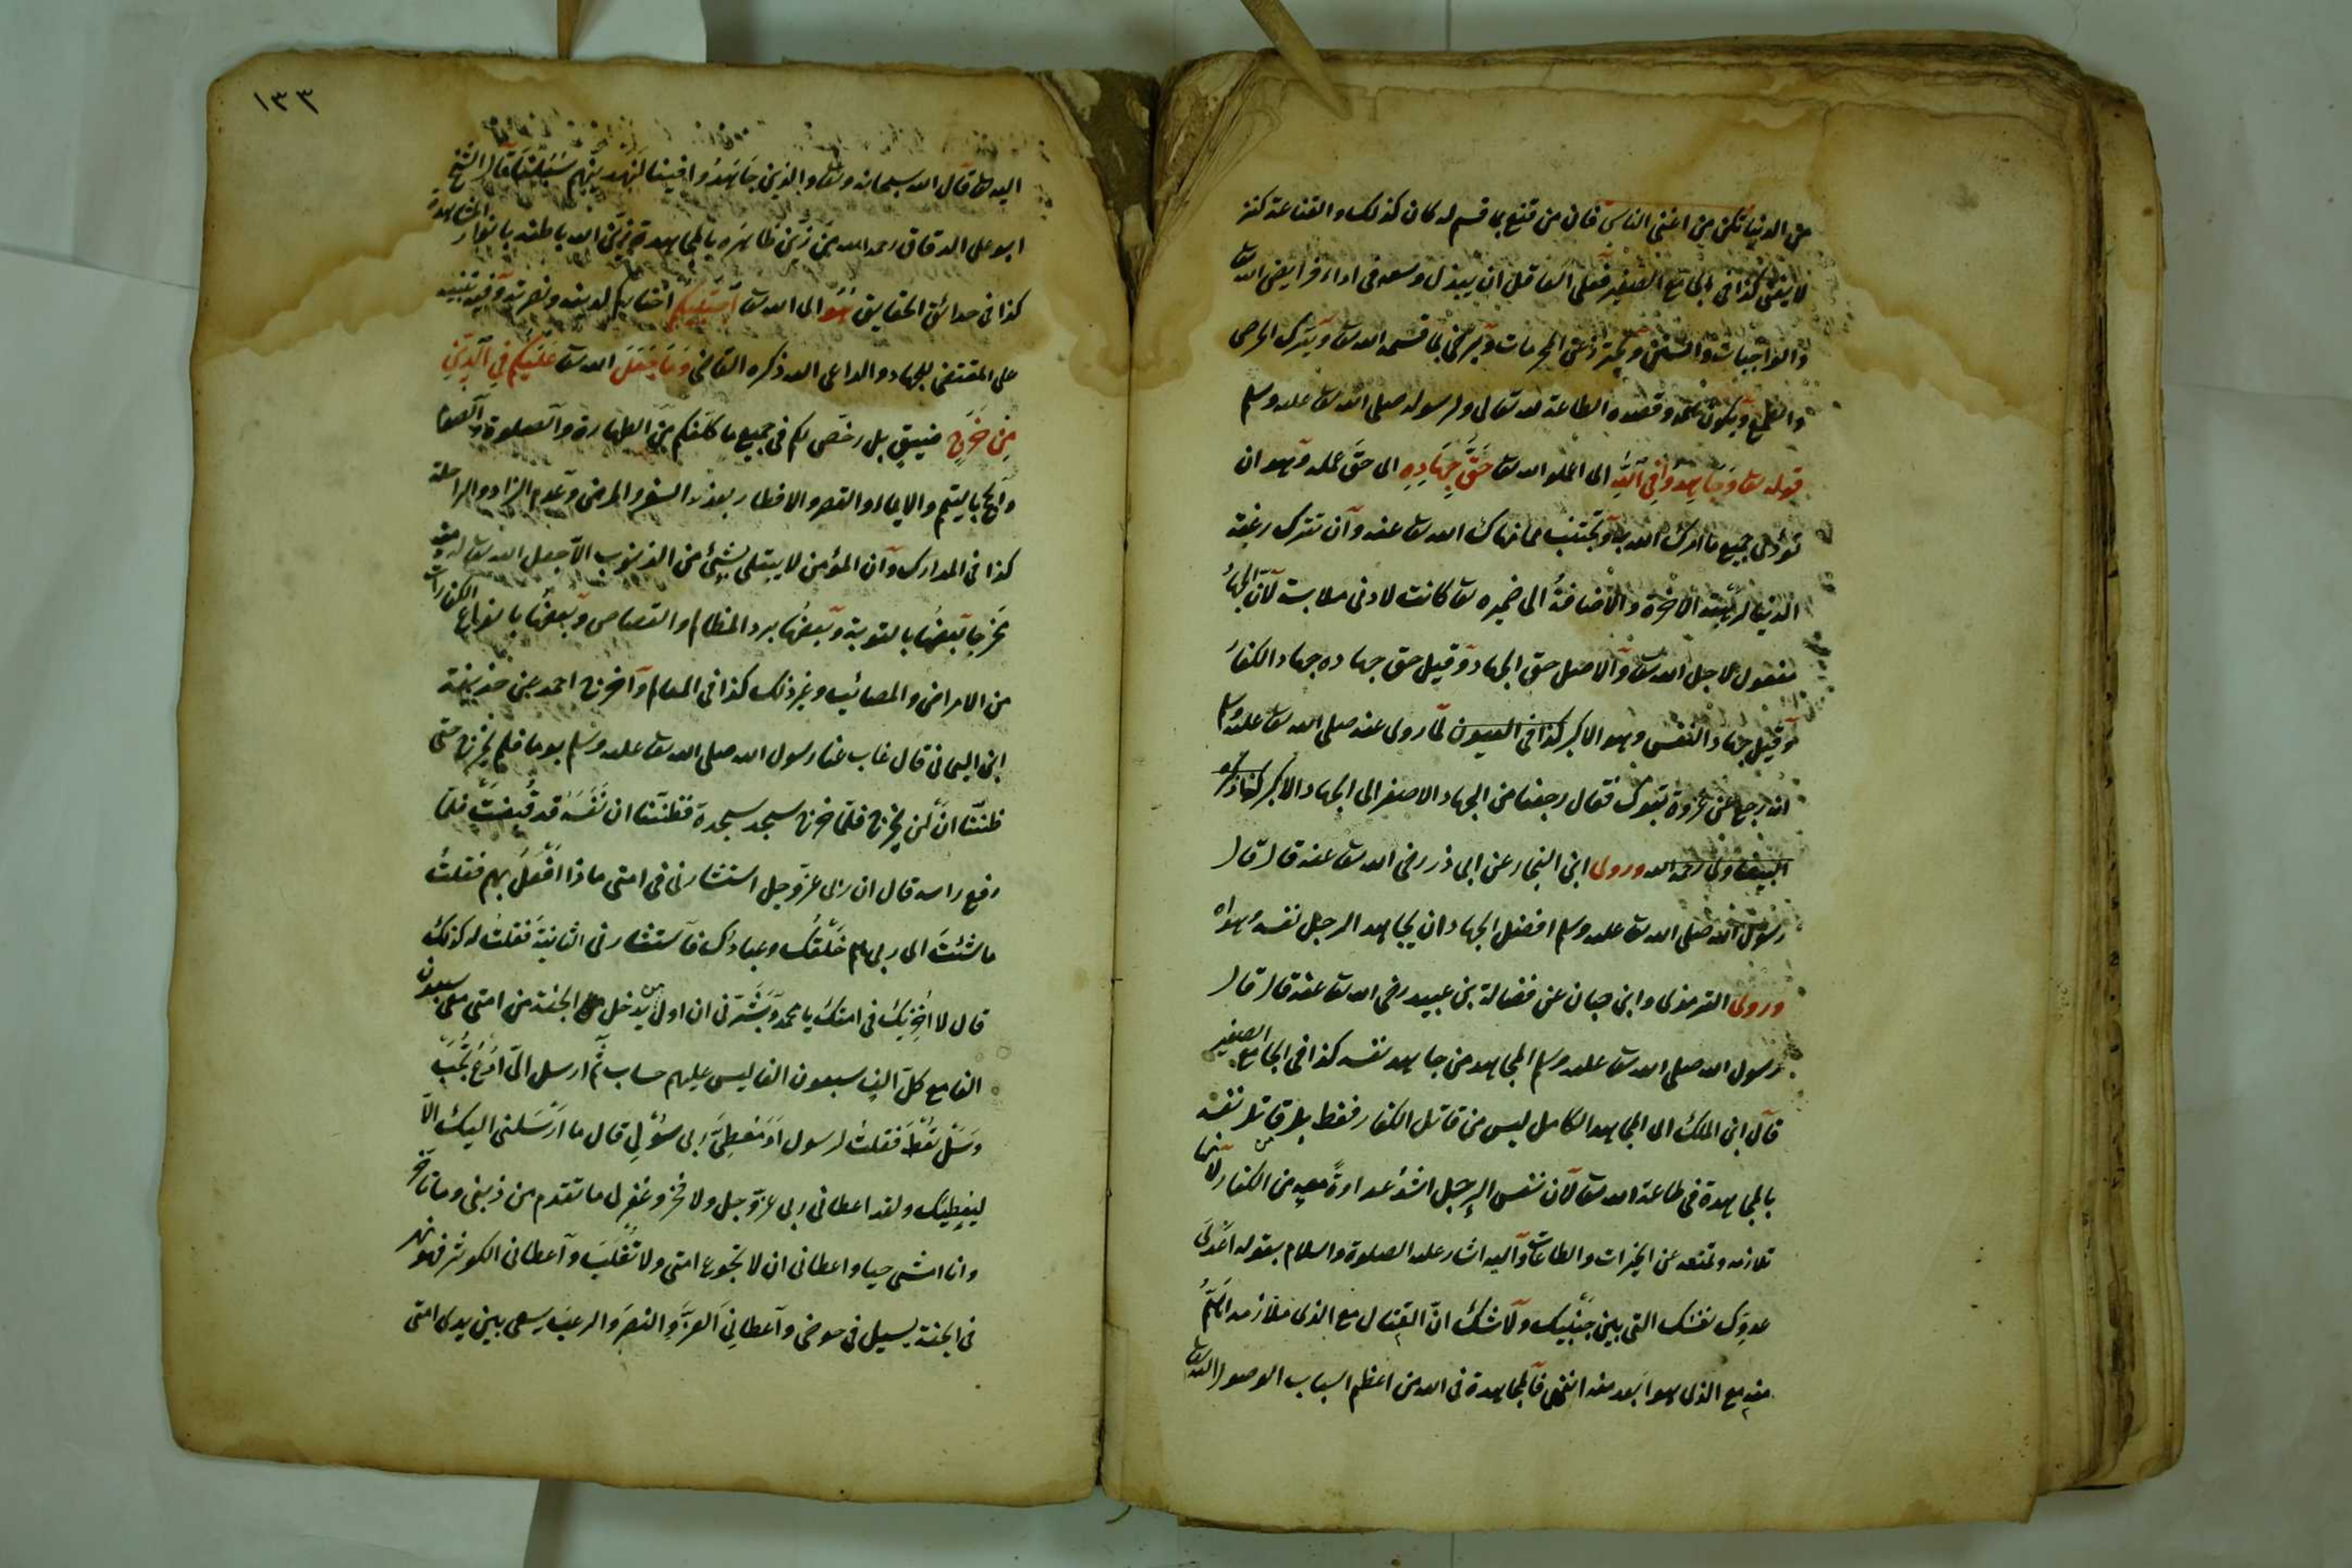 من الدنيا تكن من اغنى الناس فان من قنع بما قسم له كان كذلك والقناعة كنز
لا يفنى كذا فى الجامع الصغير فعلى العاقل ان يبذل وسعه فى اداء فرايض الله تعا
والواجبات والسنن ويحترز عن المحرمات ويرضى بما قسمه الله تعا ويترك الحرص
والطمع ويكون همه وقصده الطاعة لله تعالى ولرسوله صلى الله تعا عليه وسلم
قوله تعا وَجَاهِدُوا فِى اللّٰهِ اى اعملو الله تعا حَقَّ جِهَادِهِ اى حق عمله وهو ان
تؤدى جميع ما امرك الله به وتجتنب مما نهاك الله تعا عنه وان تترك رغبة
الدنيا لرهبة الاخرة والاضافة الى ضميره تعا كانت لادنى ملابسة لان الجهاد
مفعول لاجل الله تعا والاصل حق الجهاد وقيل حق جهاده جهاد الكفار
وقيل جهاد النفس وهو الاكبر كذا فى العيون لما روى عنه صلى الله تعا عليه وسلم
انه رجع عن غزوة تبوك فقال رجعنا من الجهاد الاصغر الى الجهاد الاكبر كذا ذكره
البيضاوى رحمه الله وروى ابن النجار عن ابى ذر رضى الله تعا عنه قال قال
رسول الله صلى الله تعا عليه وسلم افضل الجهاد ان يجاهد الرجل نفسه وهواه
وروى الترمذى وابن حبان عن فضالة بن عبيد رضى الله تعا عنه قال قال
رسول الله صلى الله تعا عليه وسلم المجاهد من جاهد نفسه كذا فى الجامع الصغير
قال ابن الملك اى المجاهد الكامل ليس من قاتل الكفار فقط بل من قاتل نفسه
بالمجاهدة فى طاعة الله تعا لان نفس الرجل اشد عداوةً معه من الكفار لانها
تلازمه وتمنعه عن الخيرات والطاعات واليه اشار عليه الصلوة والسلام بقوله اعدى
عدوك نفسك التى بين جنبيك ولا شك ان القتال مع الذى ملازمه اهمُّ
منه مع الذى هو ابعد منه انتهى فالمجاهدة فى الله من اعظم اسباب الوصول الى الله تعا
١٣٣
اليه تعا قال الله سبحانه وتعا والذين جَاهَدُوا فينا لَنَهْدِيَنَّهم سُبُلَنَا قال الشيخ
ابو على الدقاق رحمه الله من زيّن ظاهره بالمجاهدة زيّن الله باطنه بانوار المشاهدة
كذا فى حدائق الحقايق هُوَ اى الله تعا اجْتَبٰيكُمْ اختاركم لدينه ونصرته وفيه تنبيه
على المقتضى للجهاد والداعى اليه ذكره القاضى وَمَا جَعَلَ الله تعا عَلَيْكُمْ فِى الدِّينِ
مِنْ حَرَجٍ ضيق بل رخص لكم فى جميع ما كلفكم من الطهارة والصلوة والصوم
والحج بالتيمم والايماء والقصر والافطار بعذر السفر والمرض وعدم الزاد والراحلة
كذا فى المدارك وان المؤمن لا يبتلى بشئ من الذنوب الا جعل الله تعا له منه
مخرجا بعضها بالتوبة وبعضها برد المظالم والقصاص وبعضها بانواع الكفارات
من الامراض والمصائب وغير ذلك كذا فى المعالم واخرج احمد عن حذيفة
ابن اليمانى قال غاب عنا رسول الله صلى الله تعا عليه وسلم يوما فلم يخرج حتى
ظننّا ان لن يخرج فلما خرج سجد سجدة فظننّا ان نَفْسَه قد قُبِضَتْ فلما
رفع راسه قال ان ربى عز وجل استشارنى فى امتى ماذا افعل بهم فقلت
ما شئت اى ربى هم خَلْقُك وعبادك فاستشارنى الثانية فقلت له كذلك
قال لا اُخزيك فى امتك يا محمد وبَشَّرَنى ان اول من يدخل الجنة من امتى معى سبعون
الفا مع كل الف سبعون الفا ليس عليهم حساب ثم ارسل الىّ ادعُ تُجَبْ
وسَلْ تُعْطَ فقلت لرسوله اَوَ مُعطِىَّ ربى سؤلى قال ما ارسلنى اليك الا
ليعطيك ولقد اعطانى ربى عز وجل ولا فخر وغفر لى ما تقدم من ذنبى وما تأخر
وانا امشى حيا واعطانى ان لا تجوع امتى ولا تُغْلَبَ واعطانى الكوثر فهو نهر
فى الجنة يسيل فى حوضى واعطانى العزَّ والنصرَ والرعبَ يسعى بين يدى امتى